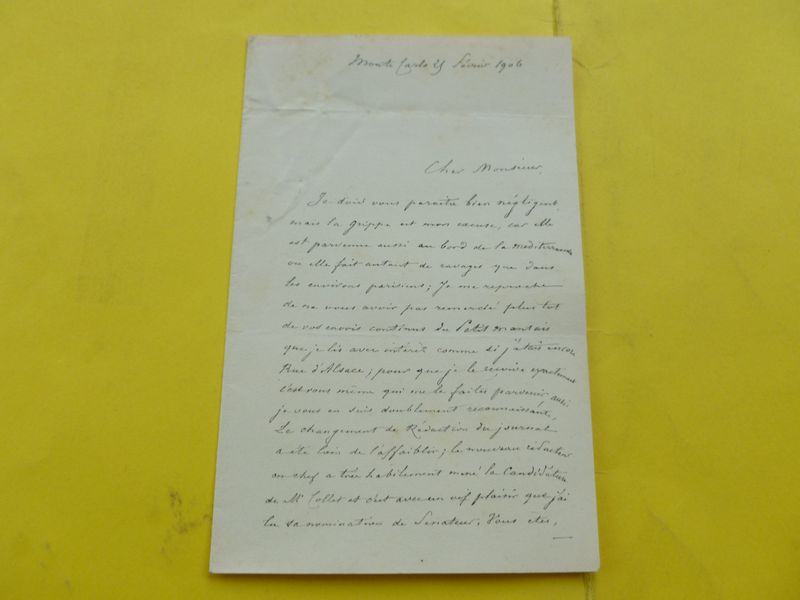 Monte Carlo 25 Février 1906
Cher Monsieur,
Je dois vous paraître bien négligent,
mais la grippe est mon excuse, car elle
est parvenue aussi au bord de la méditerranée
ou elle fait autant de ravages que dans
les environs parisiens; Je me reproche
de ne vous avoir pas remercié plus tot
de vos envois continus du Petit mantais
que je lis avec intérêt comme si j'étais encore
Rue d'Alsace; pour que je le reçoive exactement
c'est vous même qui me le faites parvenir aussi
je vous en suis doublement reconnaissante,
Le changement de Rédaction du journal
a été loin de l'affaiblir; le nouveau rédacteur
en chef a très habilement mené la Candidature
de Mr Collet et c'est avec un vif plaisir que j'ai
lu sa nomination de Senateur. Vous êtes,